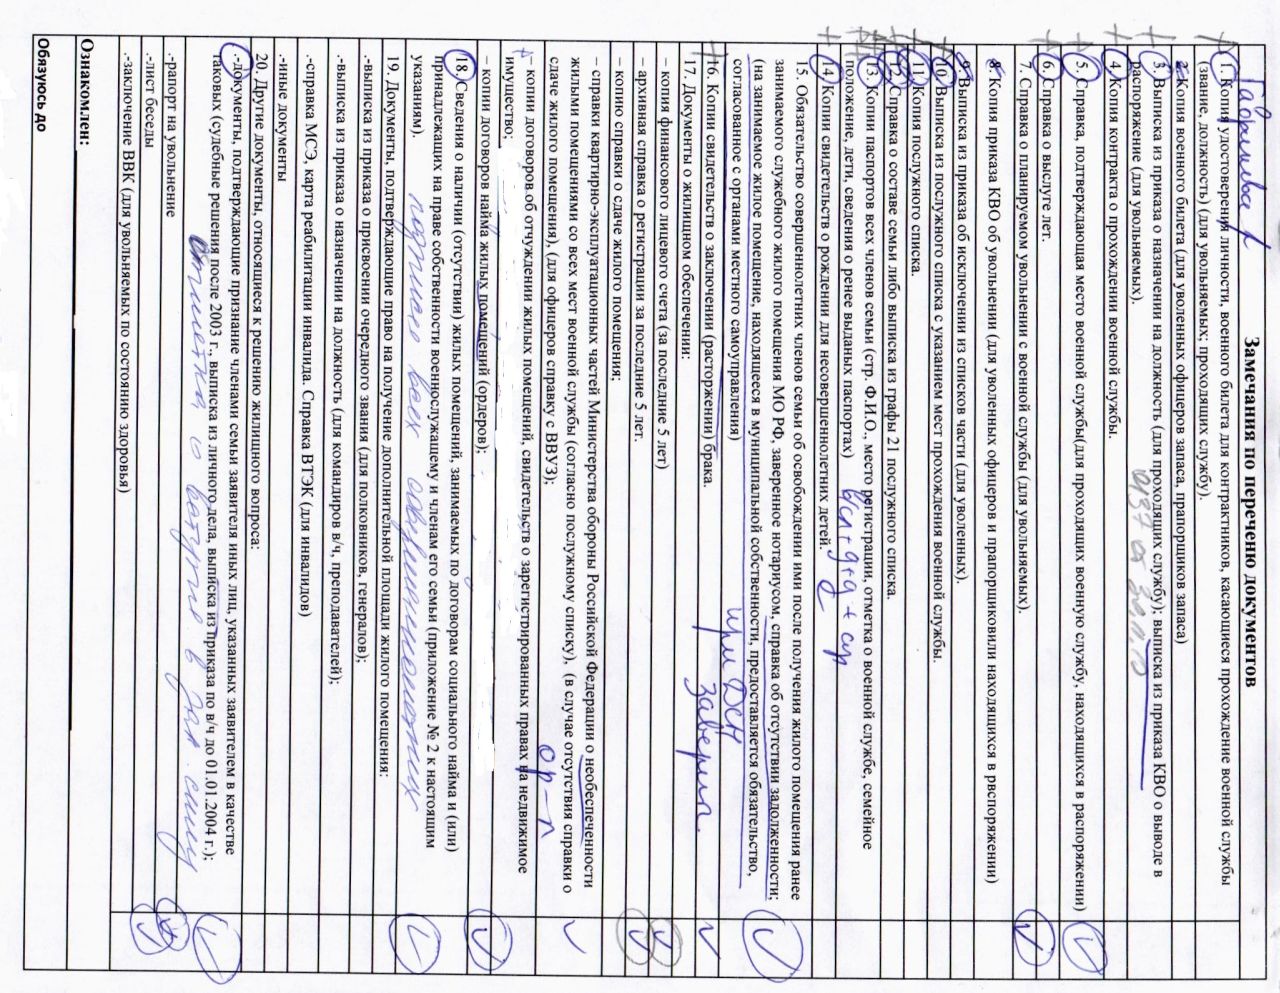 Замечания по перечню документов
1. Копия удостоверения личности, военного билета для контрактников, касающиеся прохождение военной службы
(звание, должность) (для увольняемых; проходящих службу).
2. Копия военного билета (для уволенных офицеров запаса, прапорщиков запаса)
3. Выписка из приказа о назначении на должность (для проходящих службу); выписка из приказа КВО о выводе в
распоряжение (для увольняемых).
4. Копия контракта о прохождении военной службы.
5. Справка, подтверждающая место военной службы(для проходящих военную службу, находящихся в распоряжении)
6. Справка о выслуге лет.
7. Справка о планируемом увольнении с военной службы (для увольняемых).
8. Копия приказа КВО об увольнении (для уволенных офицеров и прапорщиковили находящихся в рвспоряжении)
9. Выписка из приказа об исключении из списков части (для уволенных).
10. Выписка из послужного списка с указанием мест прохождения военной службы.
11. Копия послужного списка.
12. Справка о составе семьи либо выписка из графы 21 послужного списка.
13. Копии паспортов всех членов семьи (стр. Ф.И.О., место регистрации, отметка о военной службе, семейное
положение, дети, сведения о ренее выданых паспортах)
14. Копии свидетельств о рождении для несовершеннолетних детей.
15. Обязательство совершеннолетних членов семьи об освобождении ими после получения жилого помещения ранее
занимаемого служебного жилого помещения МО РФ, заверенное нотариусом, справка об отсутствии задолженности;
(на занимаемое жилое помещение, находящееся в муниципальной собственности, предоставляется обязательство,
согласованное с органами местного самоуправления)
при ДСН
16. Копии свидетельств о заключении (расторжении) брака.
Заверил
17. Документы о жилищном обеспечении:
– копия финансового лицевого счета (за последние 5 лет)
– архивная справка о регистрации за последние 5 лет.
– копию справки о сдаче жилого помещения;
– справки квартирно-эксплуатационных частей Министерства обороны Российской Федерации о необеспеченности
жилыми помещениями со всех мест военной службы (согласно послужному списку), (в случае отсутствия справки о
сдаче жилого помещения), (для офицеров справку с ВВУЗ);
– копии договоров об отчуждении жилых помещений, свидетельств о зарегистрированных правах на недвижимое
имущество;
– копии договоров найма жилых помещений (ордеров);
18. Сведения о наличии (отсутствии) жилых помещений, занимаемых по договорам социального найма и (или)
принадлежащих на праве собственности военнослужащему и членам его семьи (приложение № 2 к настоящим
указаниям).
19. Документы, подтверждающие право на получение дополнительной площади жилого помещения:
-выписка из приказа о присвоении очередного звания (для полковников, генералов);
-выписка из приказа о назначении на должность (для командиров в/ч, преподавателей);
-справка МСЭ, карта реабилитации инвалида. Справка ВТЭК (для инвалидов)
-иные документы
20. Другие документы, относящиеся к решению жилищного вопроса:
-документы, подтверждающие признание членами семьи заявителя иных лиц, указанных заявителем в качестве
таковых (судебные решения после 2003 г., выписки из личного дела, выписка из приказа по в/ч до 01.01.2004 г.);
-рапорт на увольнение
-лист беседы
-заключение ВВК (для увольняемых по состоянию здоровья)
Ознакомлен:
Обязуюсь до